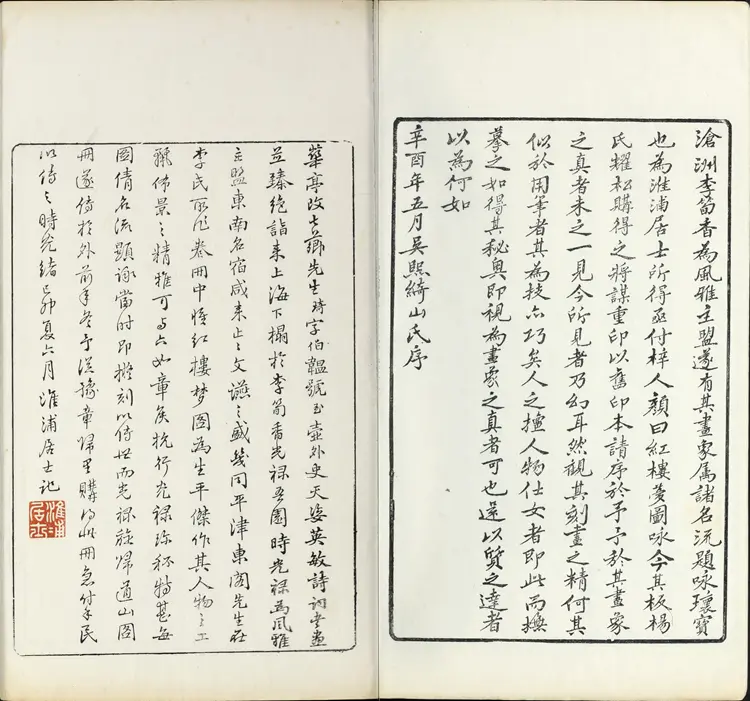 滄洲李筍香為風雅主盟遂有其畫象屬諸名流題咏瓊寶
也為淮浦居士所得亟付梓人顏曰紅樓夢圖咏今其板楊
氏耀松購得之將謀重印以舊印本請序於予予於其畫象
之真者未之一見今所見者乃幻耳然觀其刻畫之精何其
似於用筆者其為技亦巧矣人之擅人物仕女者即此而橅
摹之如得其秘奥即視為畫象之真者可也遂以質之達者
以為何如
辛酉年五月吳熙綺山氏序
華亭改七薌先生琦字伯韞號玉壺外史天姿英敏詩詞書畫
並臻絶詣来上海下榻於李筍香光祿吾園時光祿為風雅
主盟東南名宿咸来止止文讌之盛幾同平津東閣先生在
李氏所作卷冊中惟紅樓夢圖為生平傑作其人物之工
麗佈景之精雅可與六如章侯抗行光祿珍秘特甚每
圖倩名流題詠當時即擬刻以傳世而光祿旋歸道山圖
冊遂傳於外前年冬予從豫章歸里購得此冊急付手民
以傳之時光緒己卯夏六月淮浦居士記
淮浦
居士